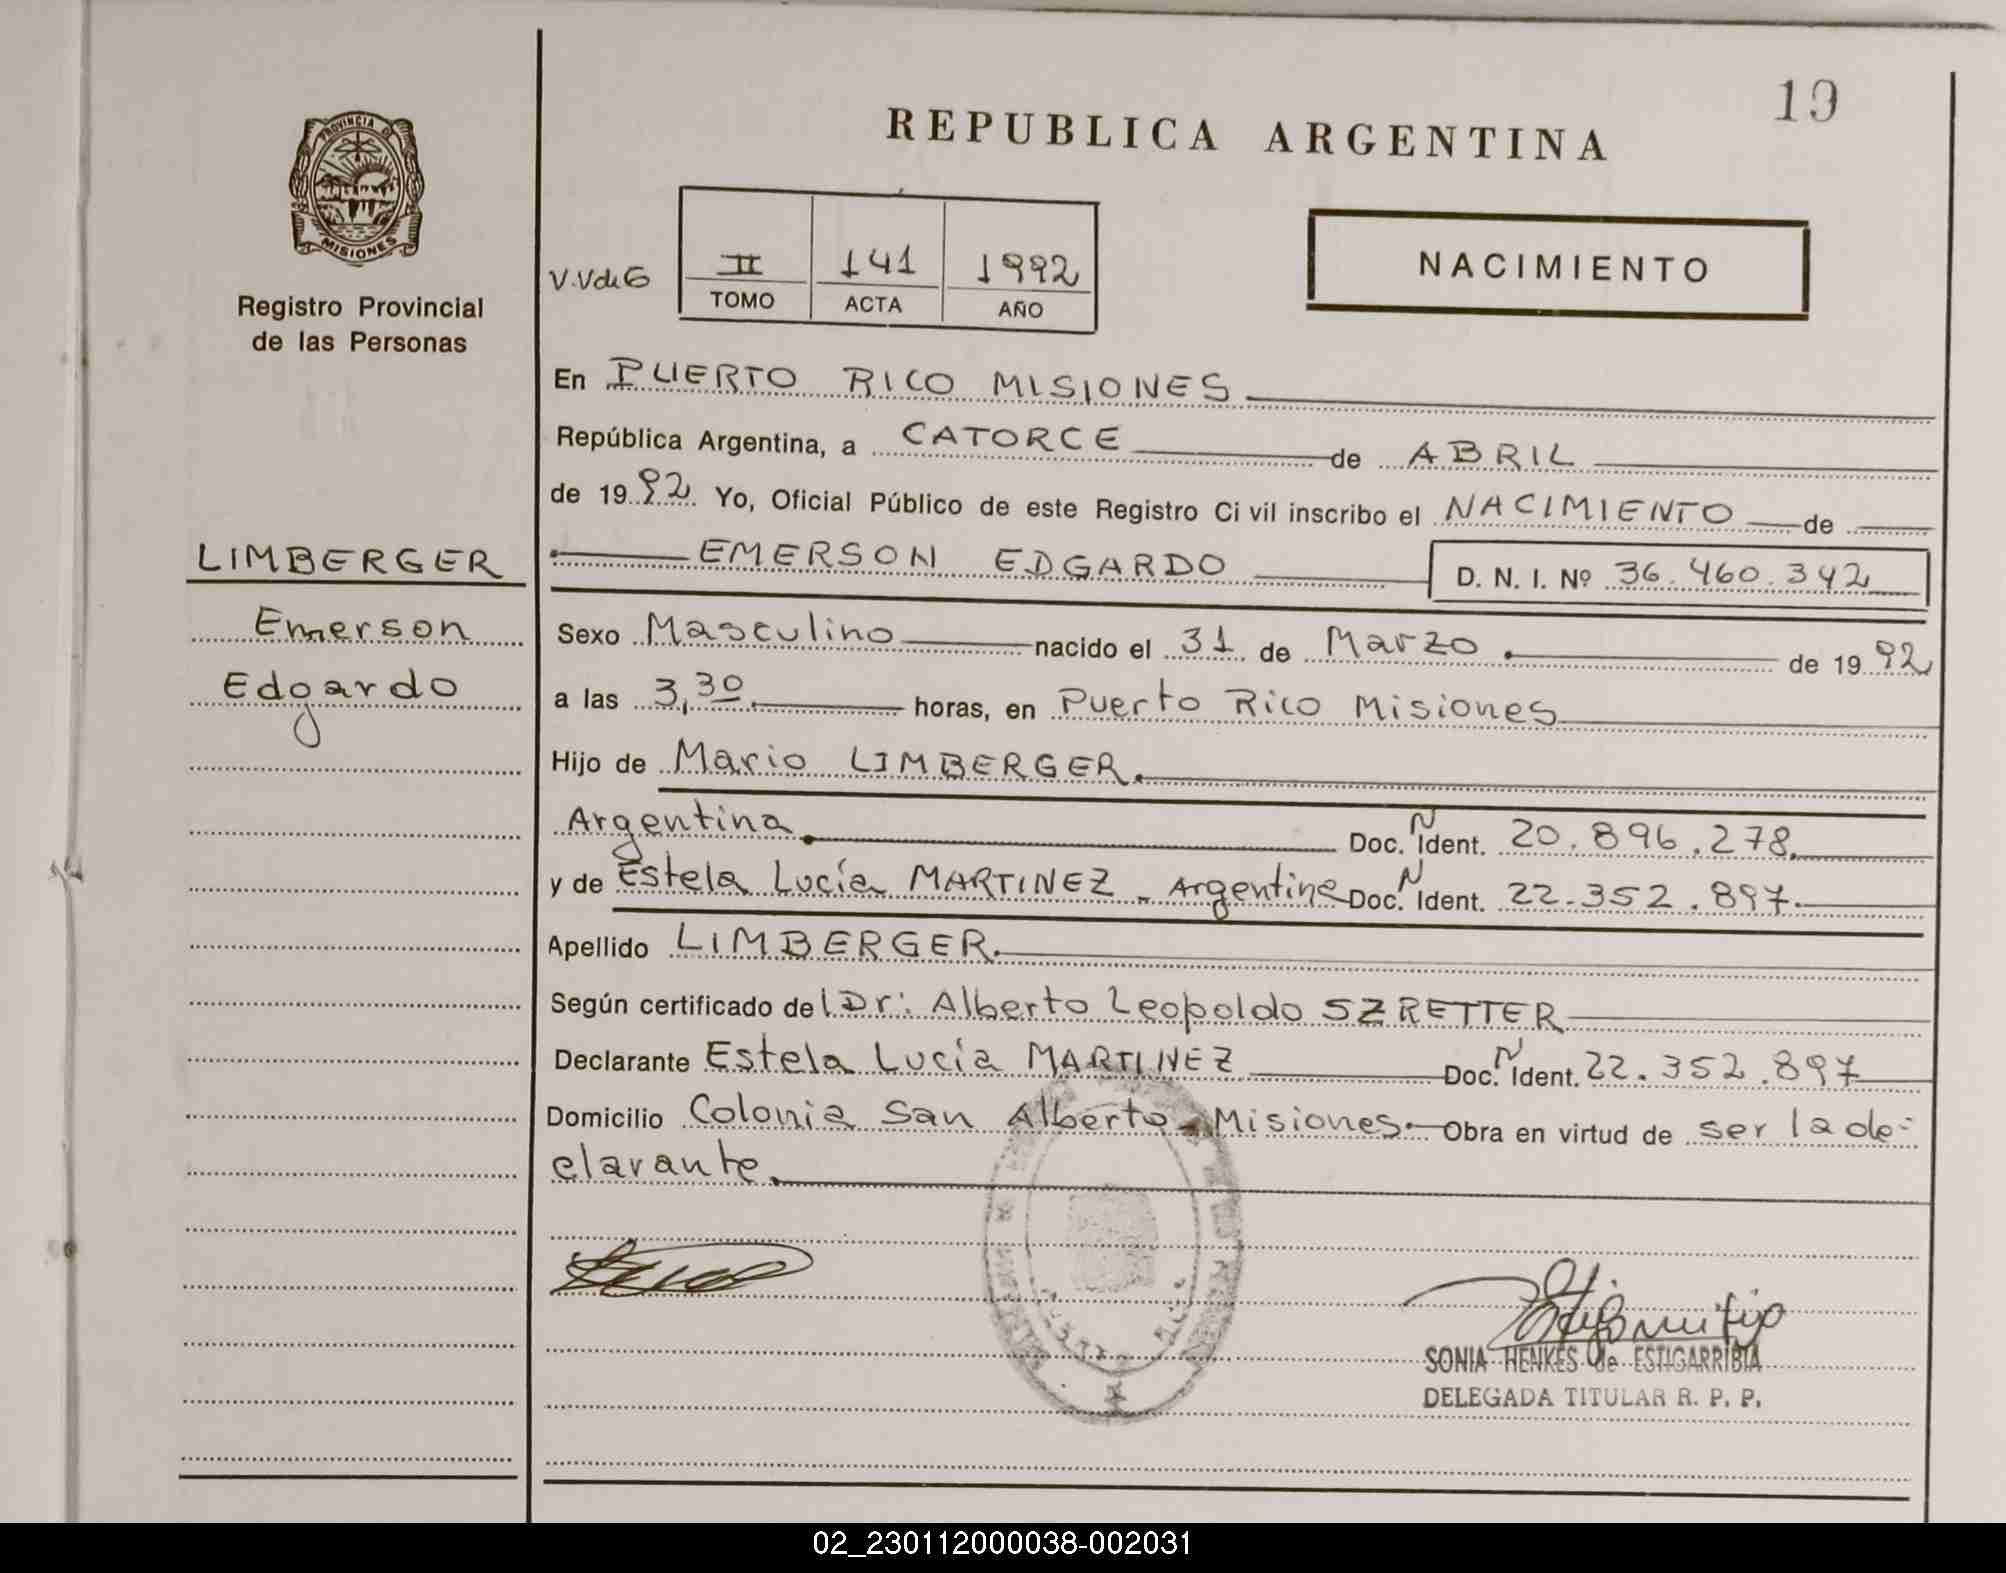 19
REPUBLICA ARGENTINA
PROVINCIA DE
MISIONES
Registro Provincial
de las Personas
V.VdeG
II 141 1992
TOMO ACTA AÑO
NACIMIENTO
En PUERTO RICO MISIONES
República Argentina, a CATORCE de ABRIL
de 1992 Yo, Oficial Público de este Registro Ci vil inscribo el NACIMIENTO de
EMERSON EDGARDO D. N. I. Nº 36.460.342
LIMBERGER
Emerson
Edgardo
Sexo Masculino nacido el 31 de Marzo de 1992
a las 3,30 horas, en Puerto Rico Misiones
Hijo de Mario LIMBERGER.
Argentina. Doc. N Ident. 20.896.278.
y de Estela Lucía MARTINEZ - Argentina Doc. N Ident. 22.352.897.
Apellido LIMBERGER.
Según certificado del Dr: Alberto Leopoldo SZRETTER
Declarante Estela Lucía MARTINEZ Doc. N Ident. 22.352.897
Domicilio Colonia San Alberto - Misiones.- Obra en virtud de ser la de-
clarante.
SONIA HENKES de ESTIGARRIBIA
DELEGADA TITULAR R. P. P.
02_230112000038-002031